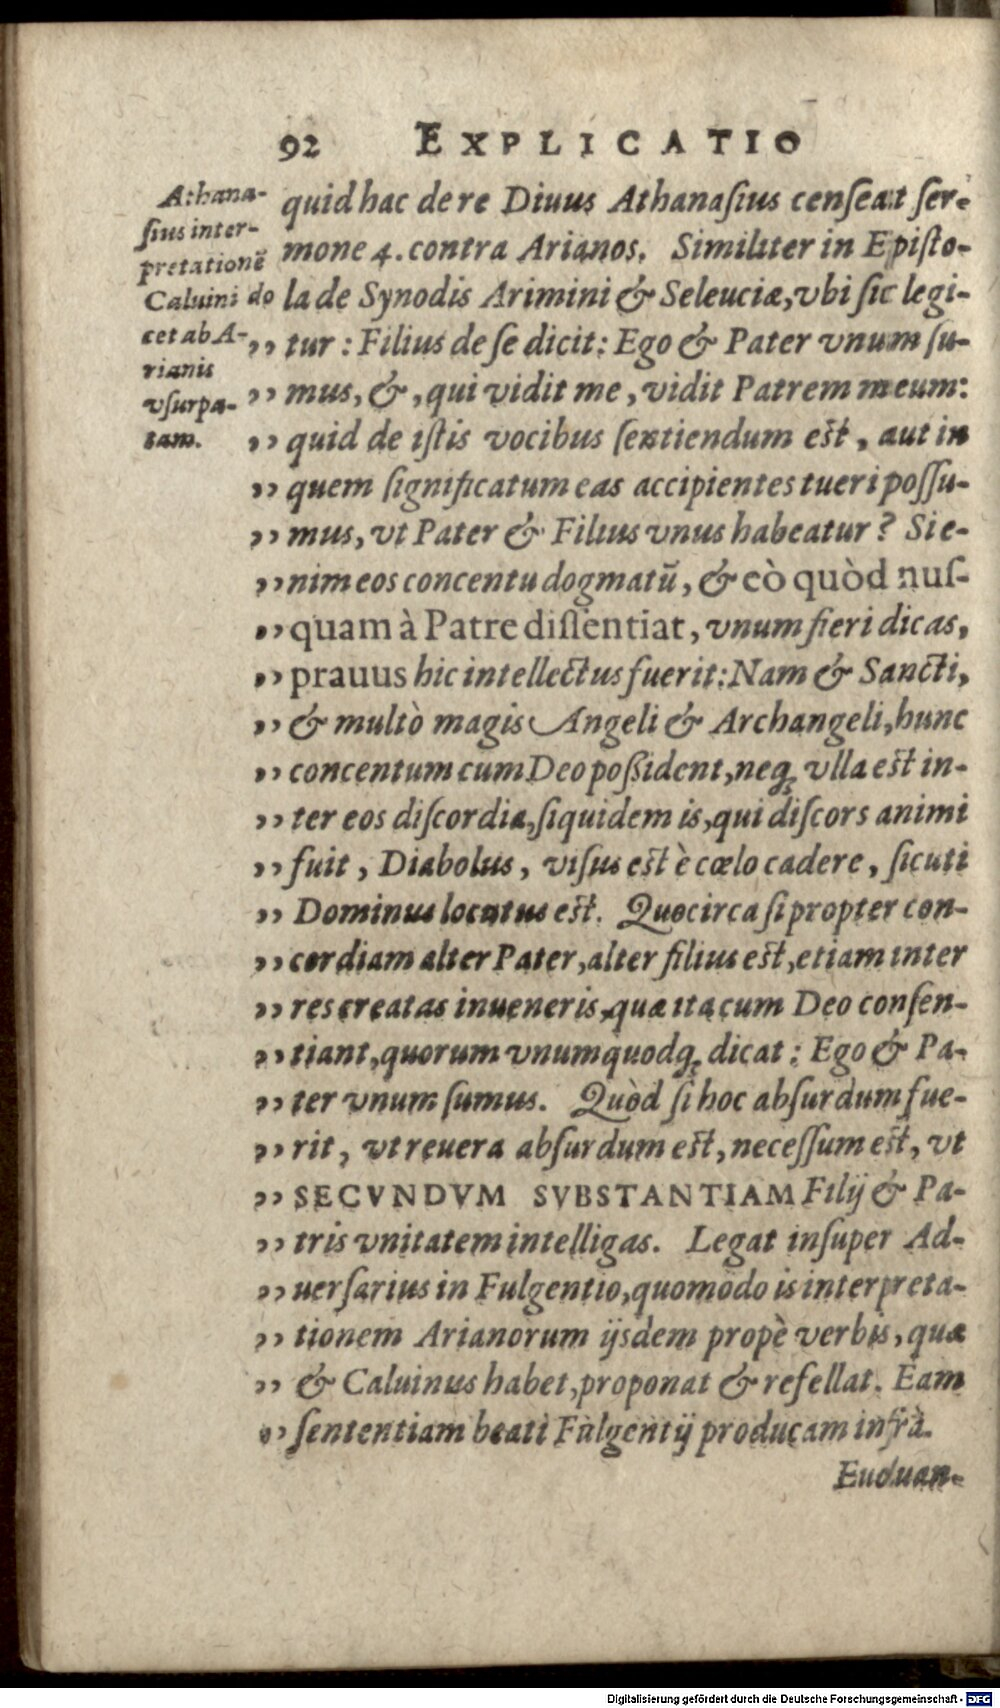 92 EXPLICATIO
Athana-
ſius inter-
pretationẽ
Caluini do
cet ab A-
rianis
vſurpa-
tam.
quid hac de re Diuus Athanaſius cenſeat ſer-
mone 4. contra Arianos. Similiter in Epiſto-
la de Synodis Arimini & Seleuciæ, vbi ſic legi-
„ tur: Filius de ſe dicit: Ego & Pater vnum ſu-
„ mus, &, qui vidit me, vidit Patrem meum:
„ quid de iſtis vocibus ſentiendum eſt, aut in
„ quem ſignificatum eas accipientes tueri poſſu-
„ mus, vt Pater & Filius vnus habeatur? Si e-
„ nim eos concentu dogmatũ, & eò quòd nuſ-
„ quam à Patre diſſentiat, vnum fieri dicas,
„ prauus hic intellectus fuerit: Nam & Sancti,
„ & multò magis Angeli & Archangeli, hunc
„ concentum cum Deo poßident, neq; vlla eſt in-
„ ter eos diſcordia, ſiquidem is, qui diſcors animi
„ fuit, Diabolus, viſus eſt è cœlo cadere, ſicuti
„ Dominus locutus eſt. Quocirca ſi propter con-
„ cordiam alter Pater, alter filius eſt, etiam inter
„ res creatas inueneris, quæ ita cum Deo conſen-
„ tiant, quorum vnumquodq; dicat: Ego & Pa-
„ ter vnum ſumus. Quòd ſi hoc abſurdum fue-
„ rit, vt reuera abſurdum eſt, neceſſum eſt, vt
„ SECVNDVM SVBSTANTIAM Filij & Pa-
„ tris vnitatem intelligas. Legat inſuper Ad-
„ uerſarius in Fulgentio, quomodo is interpreta-
„ tionem Arianorum ijsdem propè verbis, quæ
„ & Caluinus habet, proponat & refellat. Eam
„ ſententiam beati Fulgentij producam infrà.
Euduan-
Digitalisierung gefördert durch die Deutsche Forschungsgemeinschaft - DFG